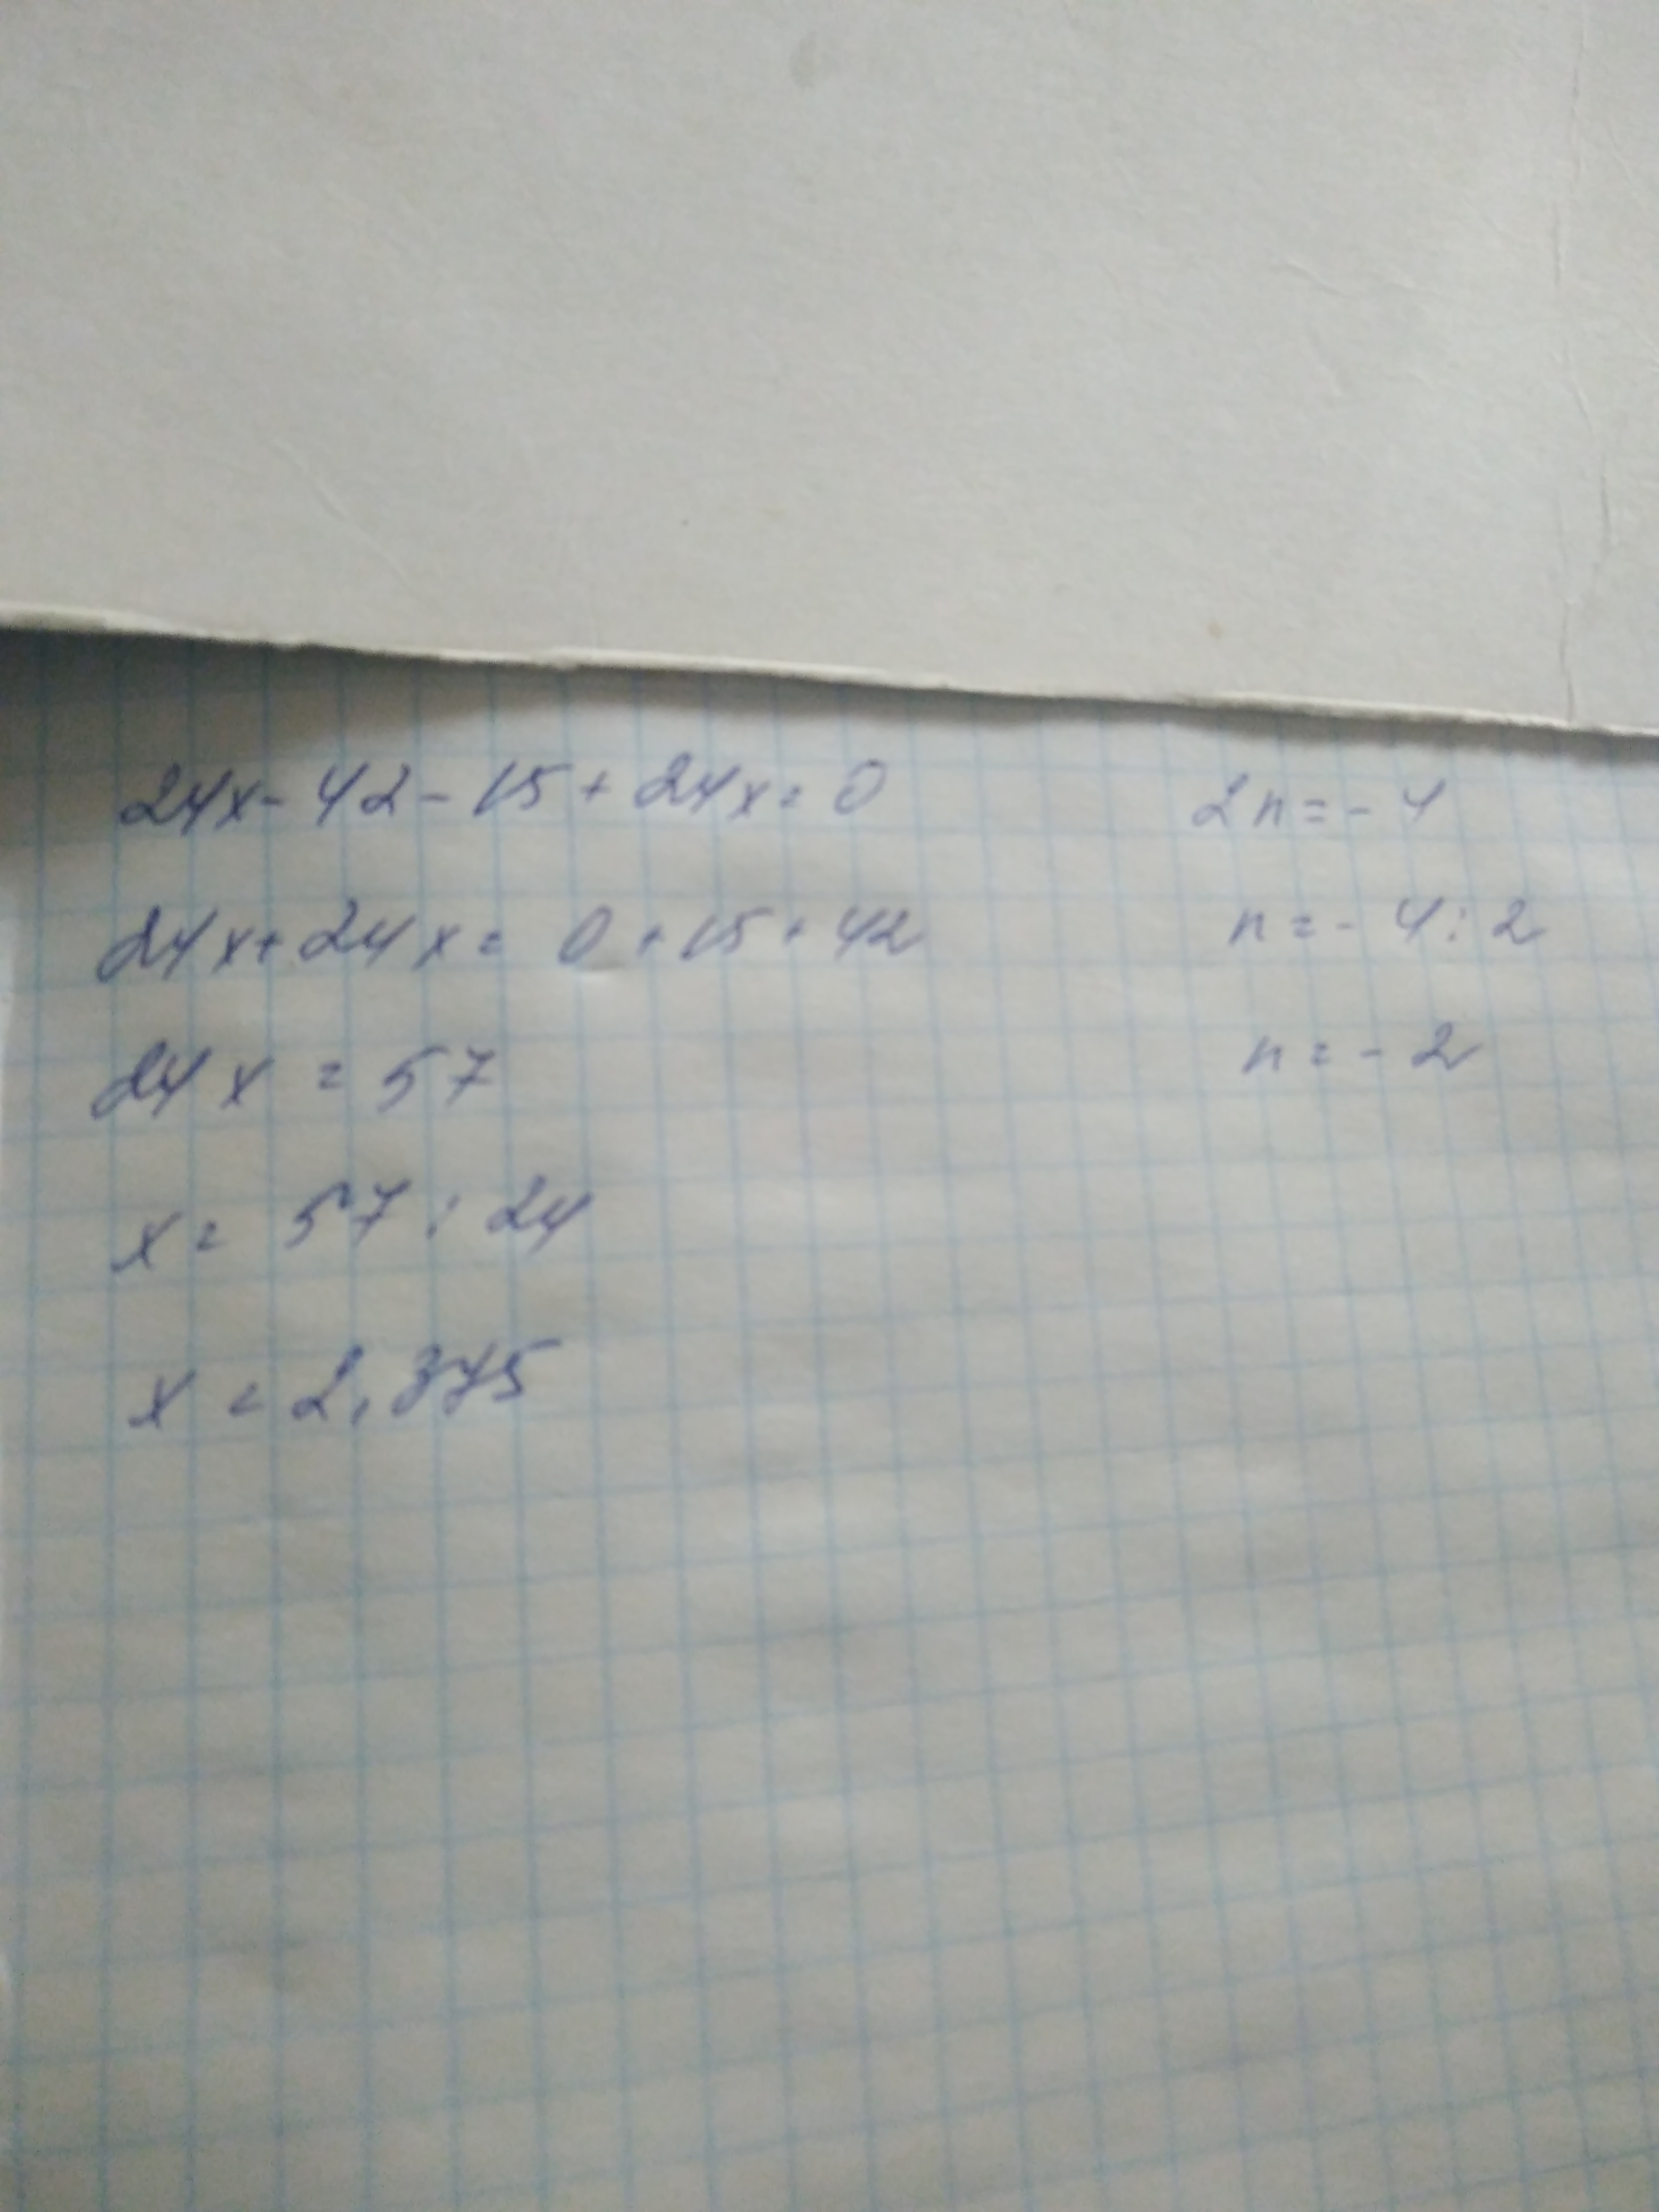 24x - 42 - 15 + 24x = 0
24x + 24x = 0 + 15 + 42
24x = 57
x = 57 : 24
x = 2,375
2n = - 4
n = - 4 : 2
n = - 2